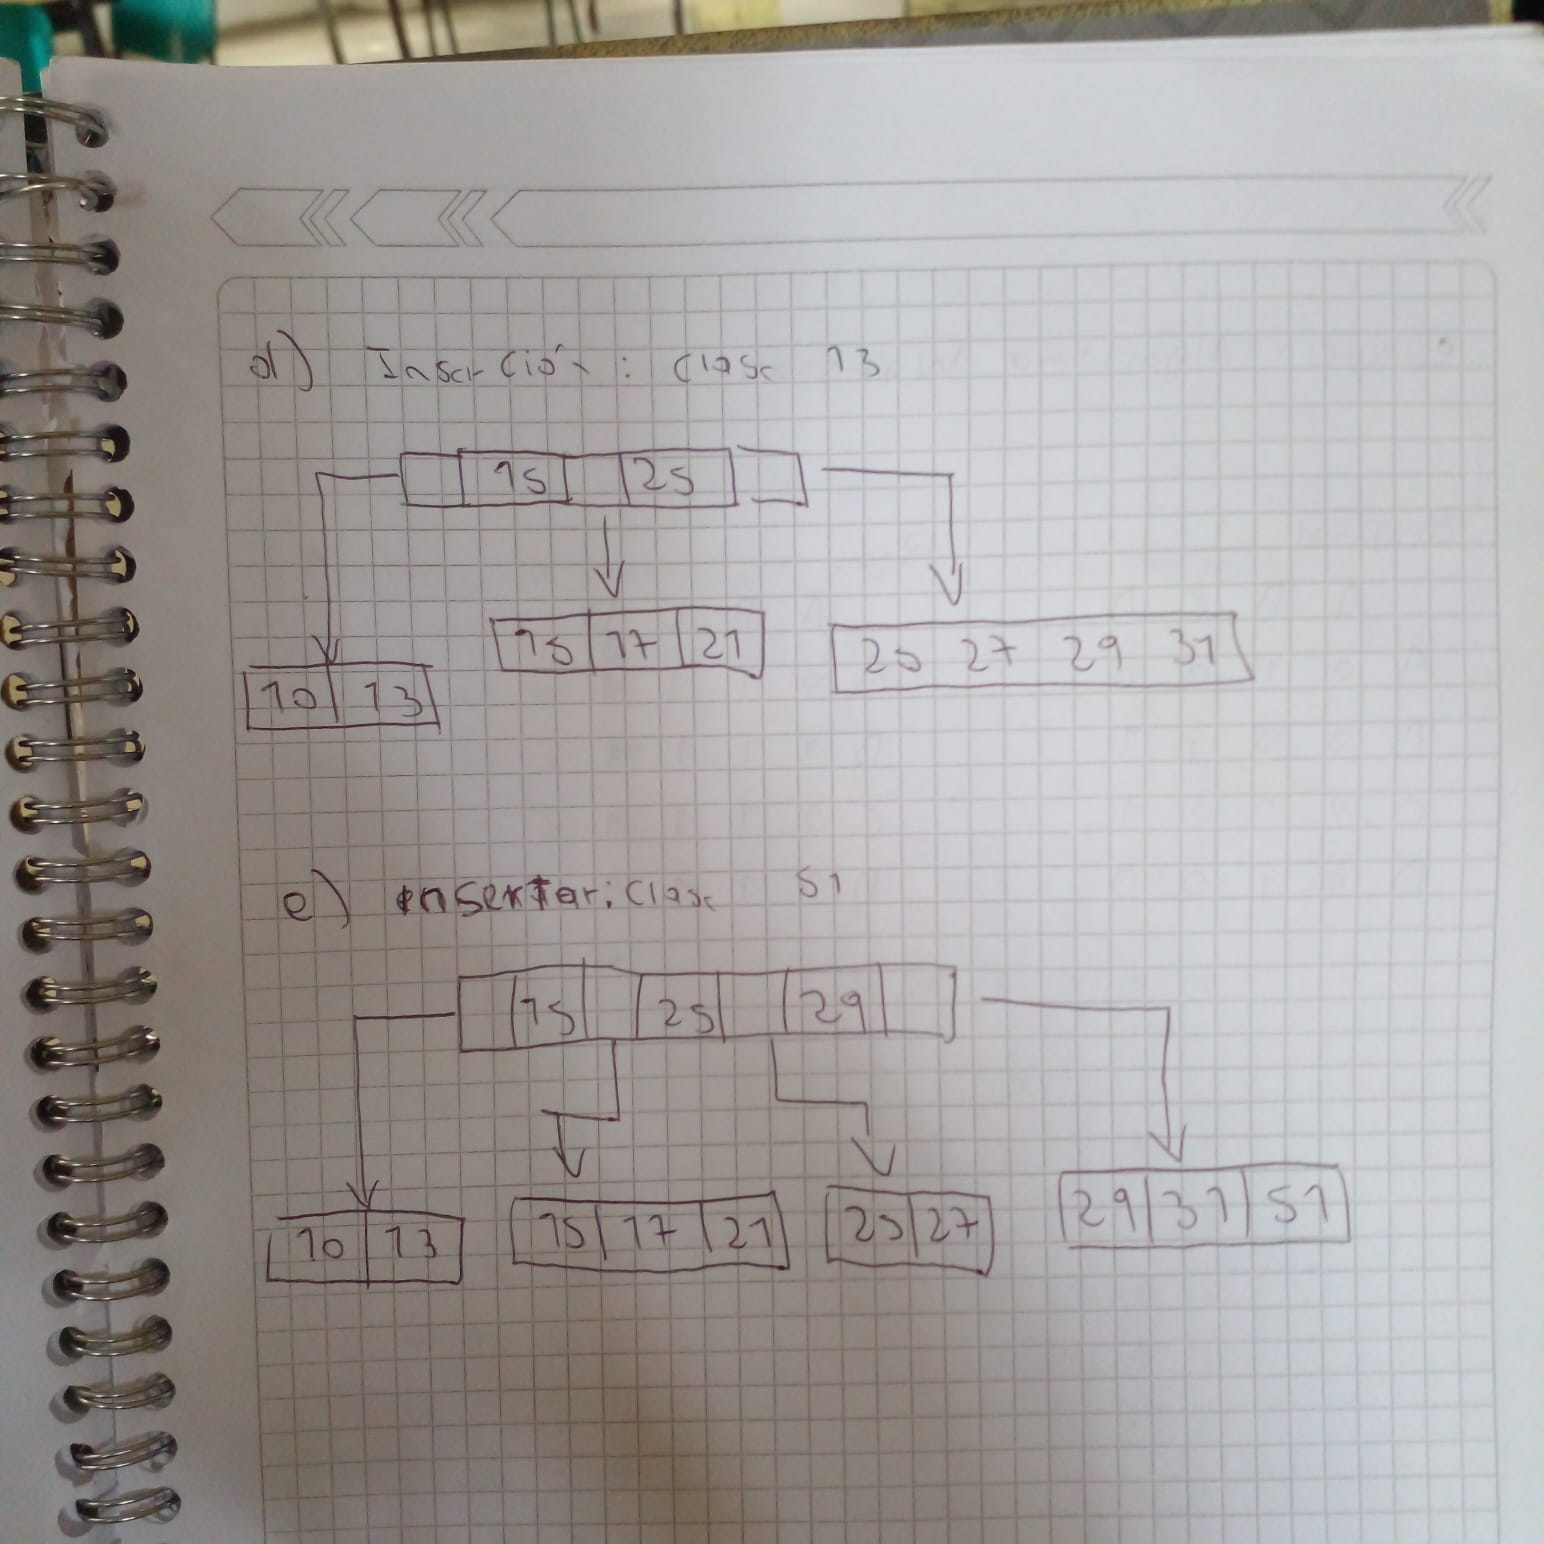 d) Inserción: clase 13
15 25
15 17 21 25 27 29 31
10 13
e) insertar: clase 51
15 25 29
10 13 15 17 21 25 27 29 31 51